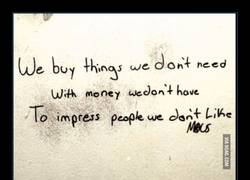 We buy things we don't need
With money we don't have
To impress people we don't Like
VIA 9GAG.COM